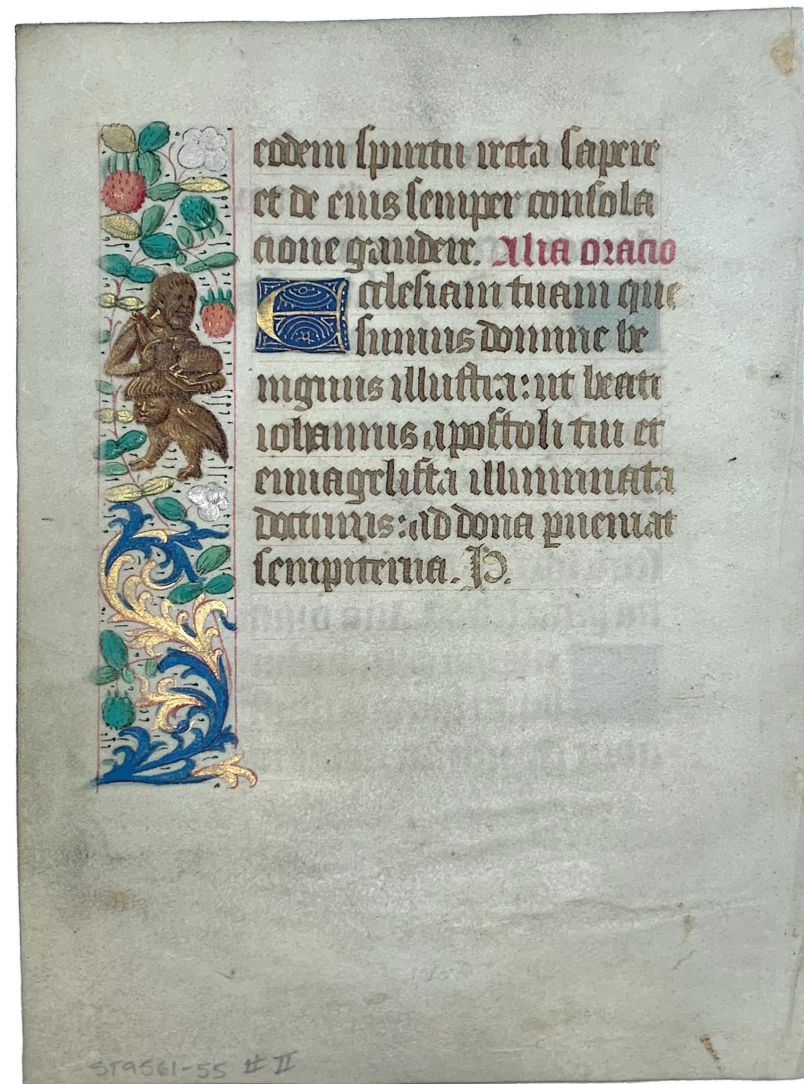 eodem spiritu recta sapere
et de eius semper consola
cione gaudere. Alia oracio
Ecclesiam tuam que
sumus domine be
nignus illustra: ut beati
iohannis apostoli tui et
euuagelista illuminata
doctrinis: ad dona pueniat
sempiterna. P.
ST9561-55 # II